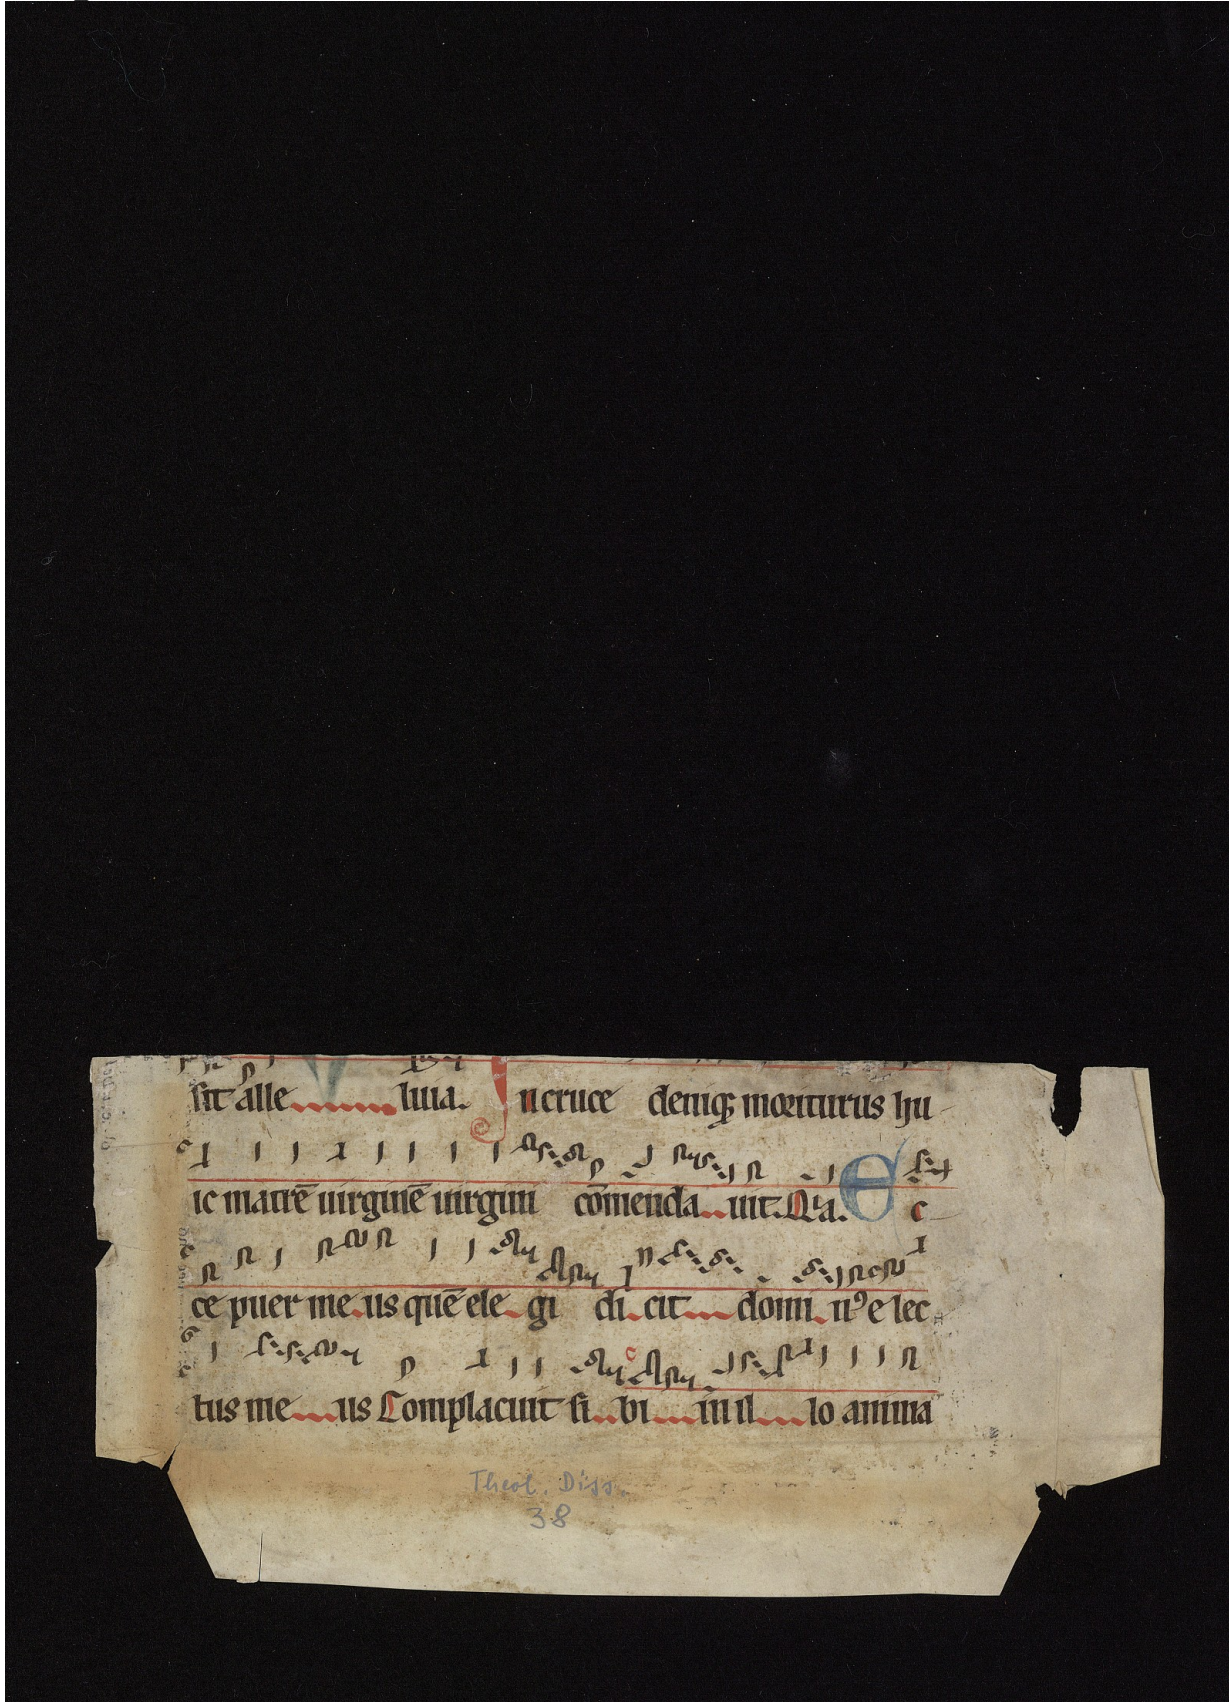 sit alle luia. In cruce deniqꝫ moriturus hu
ic matrē uirginē uirgini cōmenda uit. Qia. E c
ce puer me us quē ele gi di cit domi nꝰ e lec
tus me us Complacuit si bi in il lo anima
Theol. Diss.
38